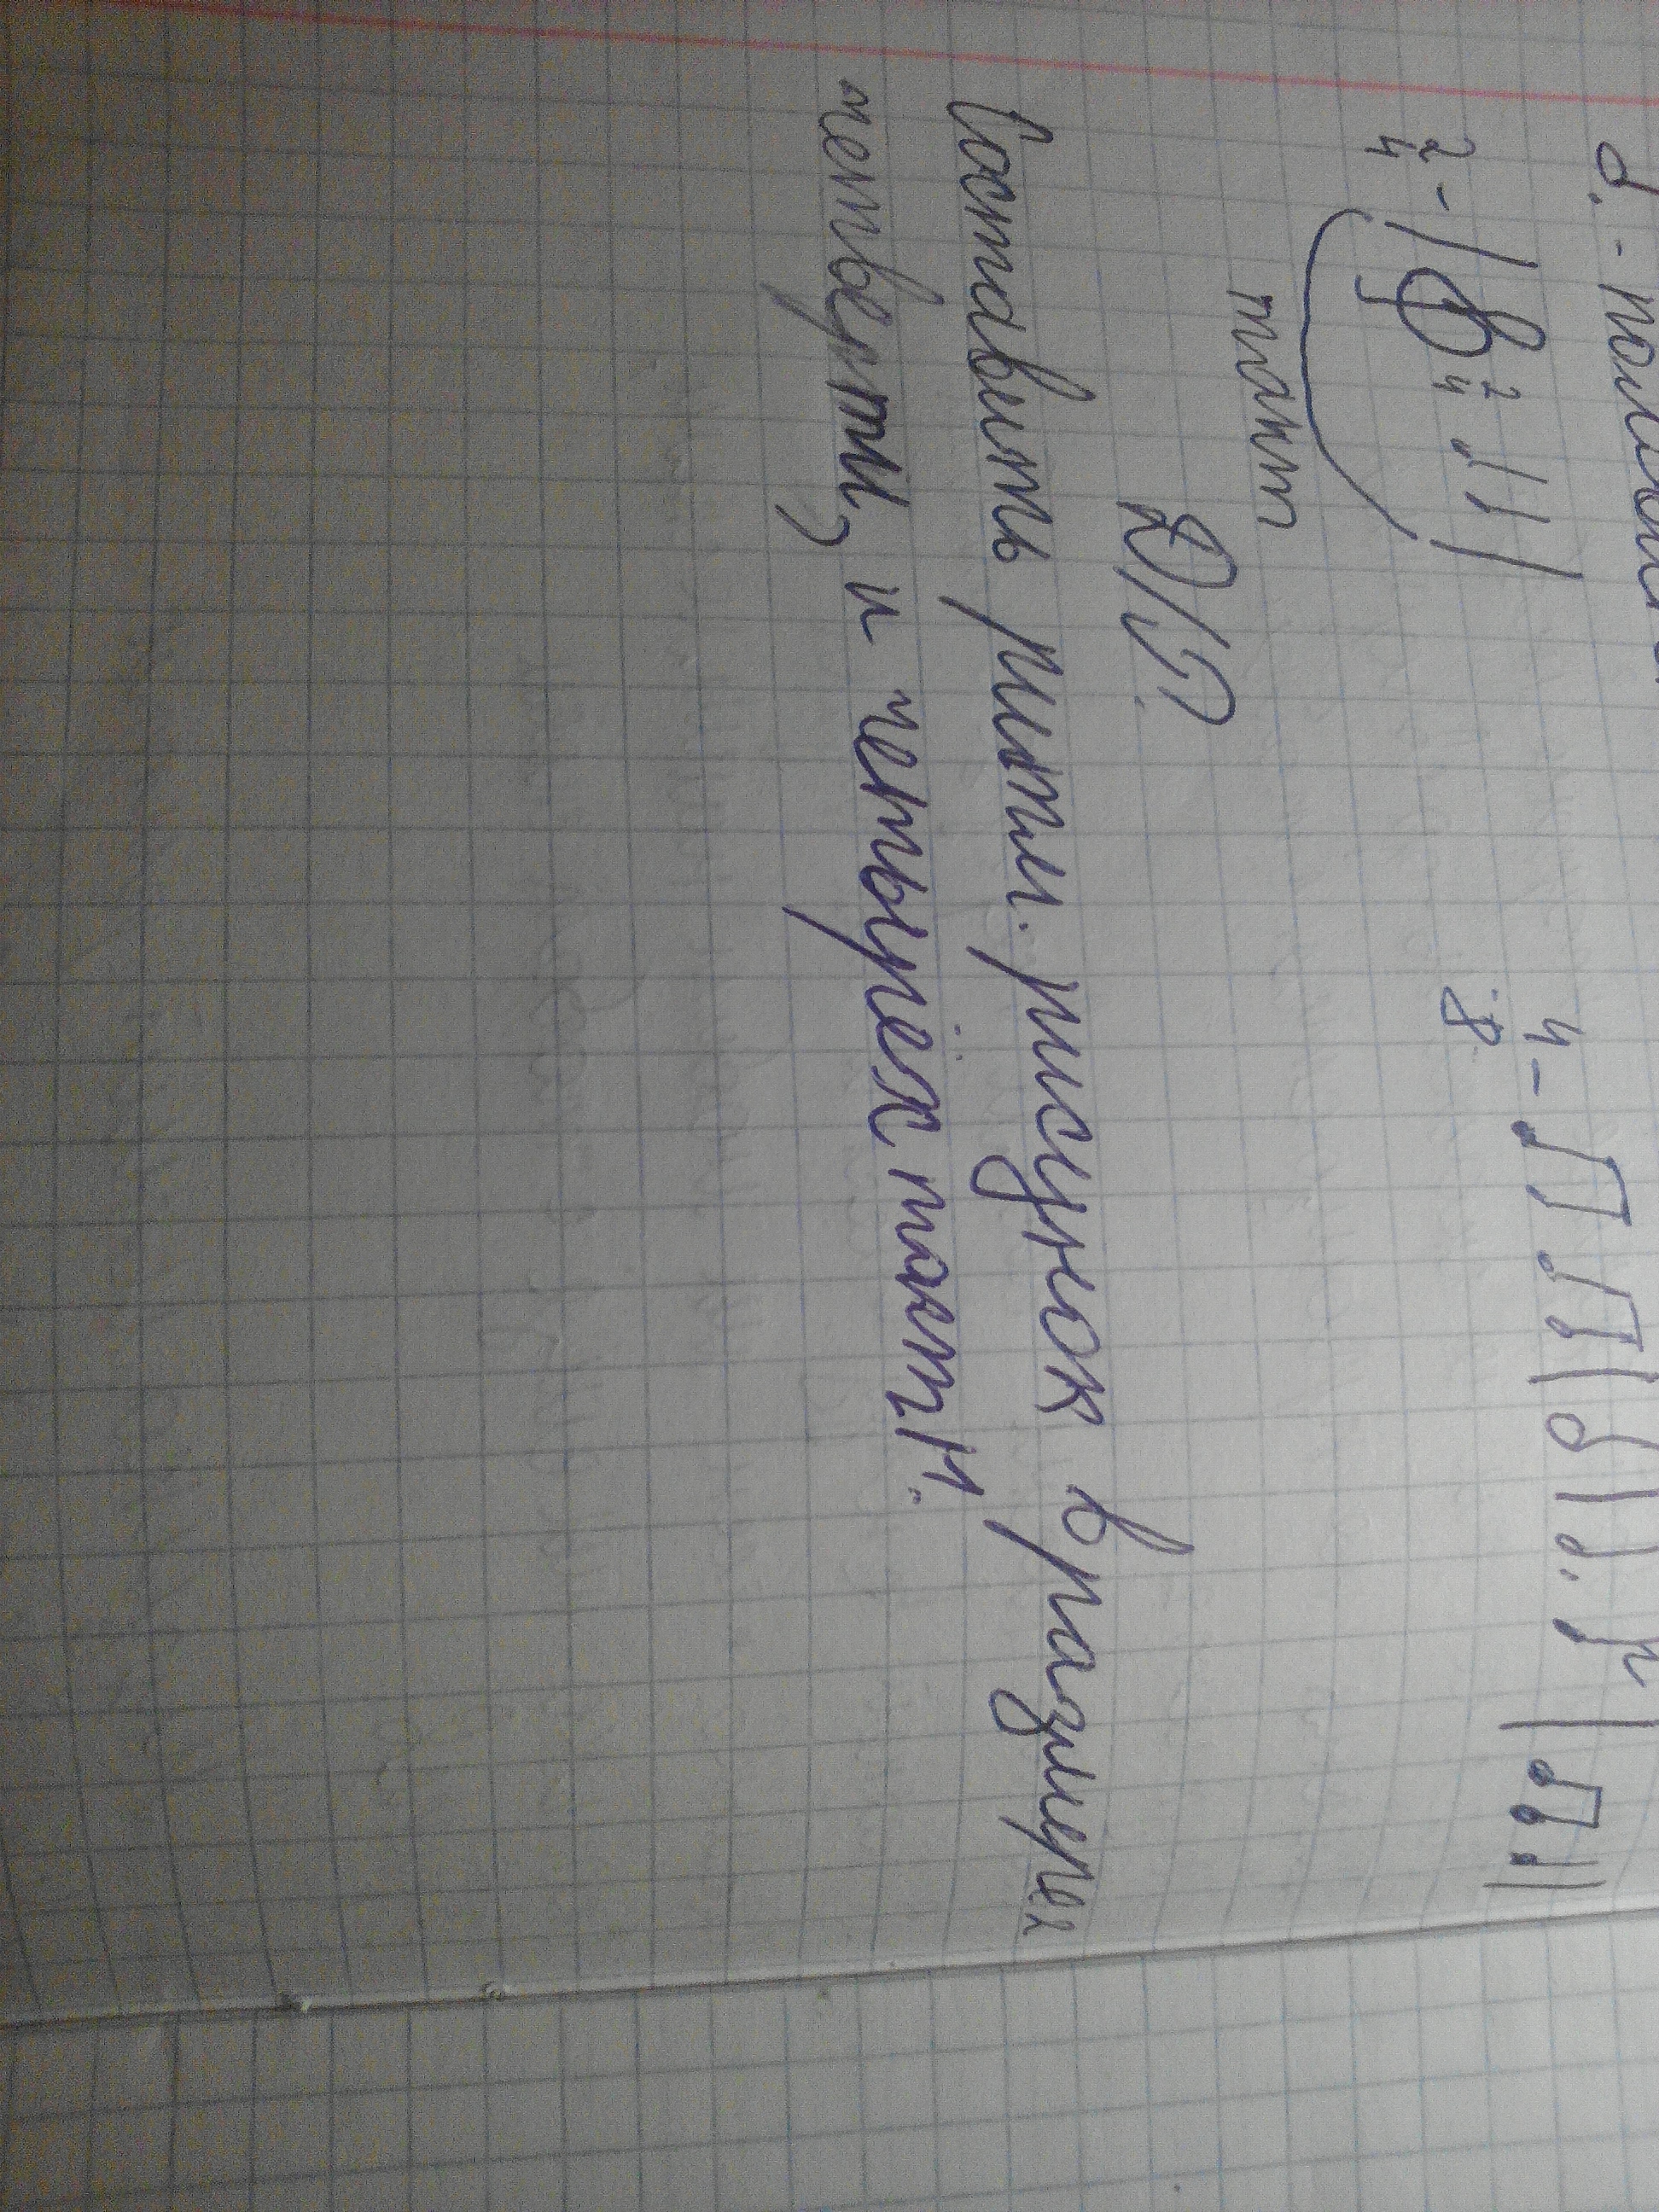 𝅗𝅥. - полов
2/4 - | 2/4 ♩ ||
такт
4 - ♫ ♫ | 𝅗𝅥 | ♩. ♪ | ♫ ||
:8
Д/З?
Составить ритм. рисунок в размере
четверти, и четырёх такт.